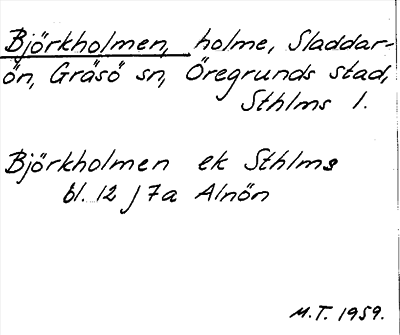 Björkholmen, holme, Sladdar-
ön, Gräsö sn, Öregrunds stad,
Sthlms l.
Björkholmen ek Sthlms
bl. 12 j 7a Alnön
M.T. 1959.